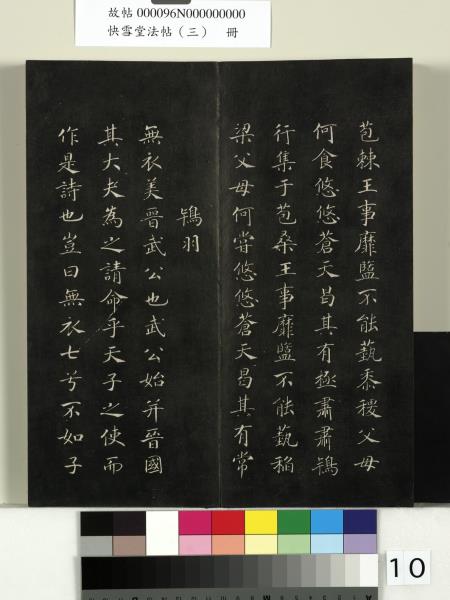 故帖 000096N000000000
快雪堂法帖（三） 冊
苞棘王事靡盬不能蓺黍稷父母
何食悠悠蒼天曷其有極肅肅鴇
行集于苞桑王事靡盬不能蓺稻
梁父母何嘗悠悠蒼天曷其有常
鴇羽
無衣美晉武公也武公始并晉國
其大夫為之請命乎天子之使而
作是詩也豈曰無衣七兮不如子
10